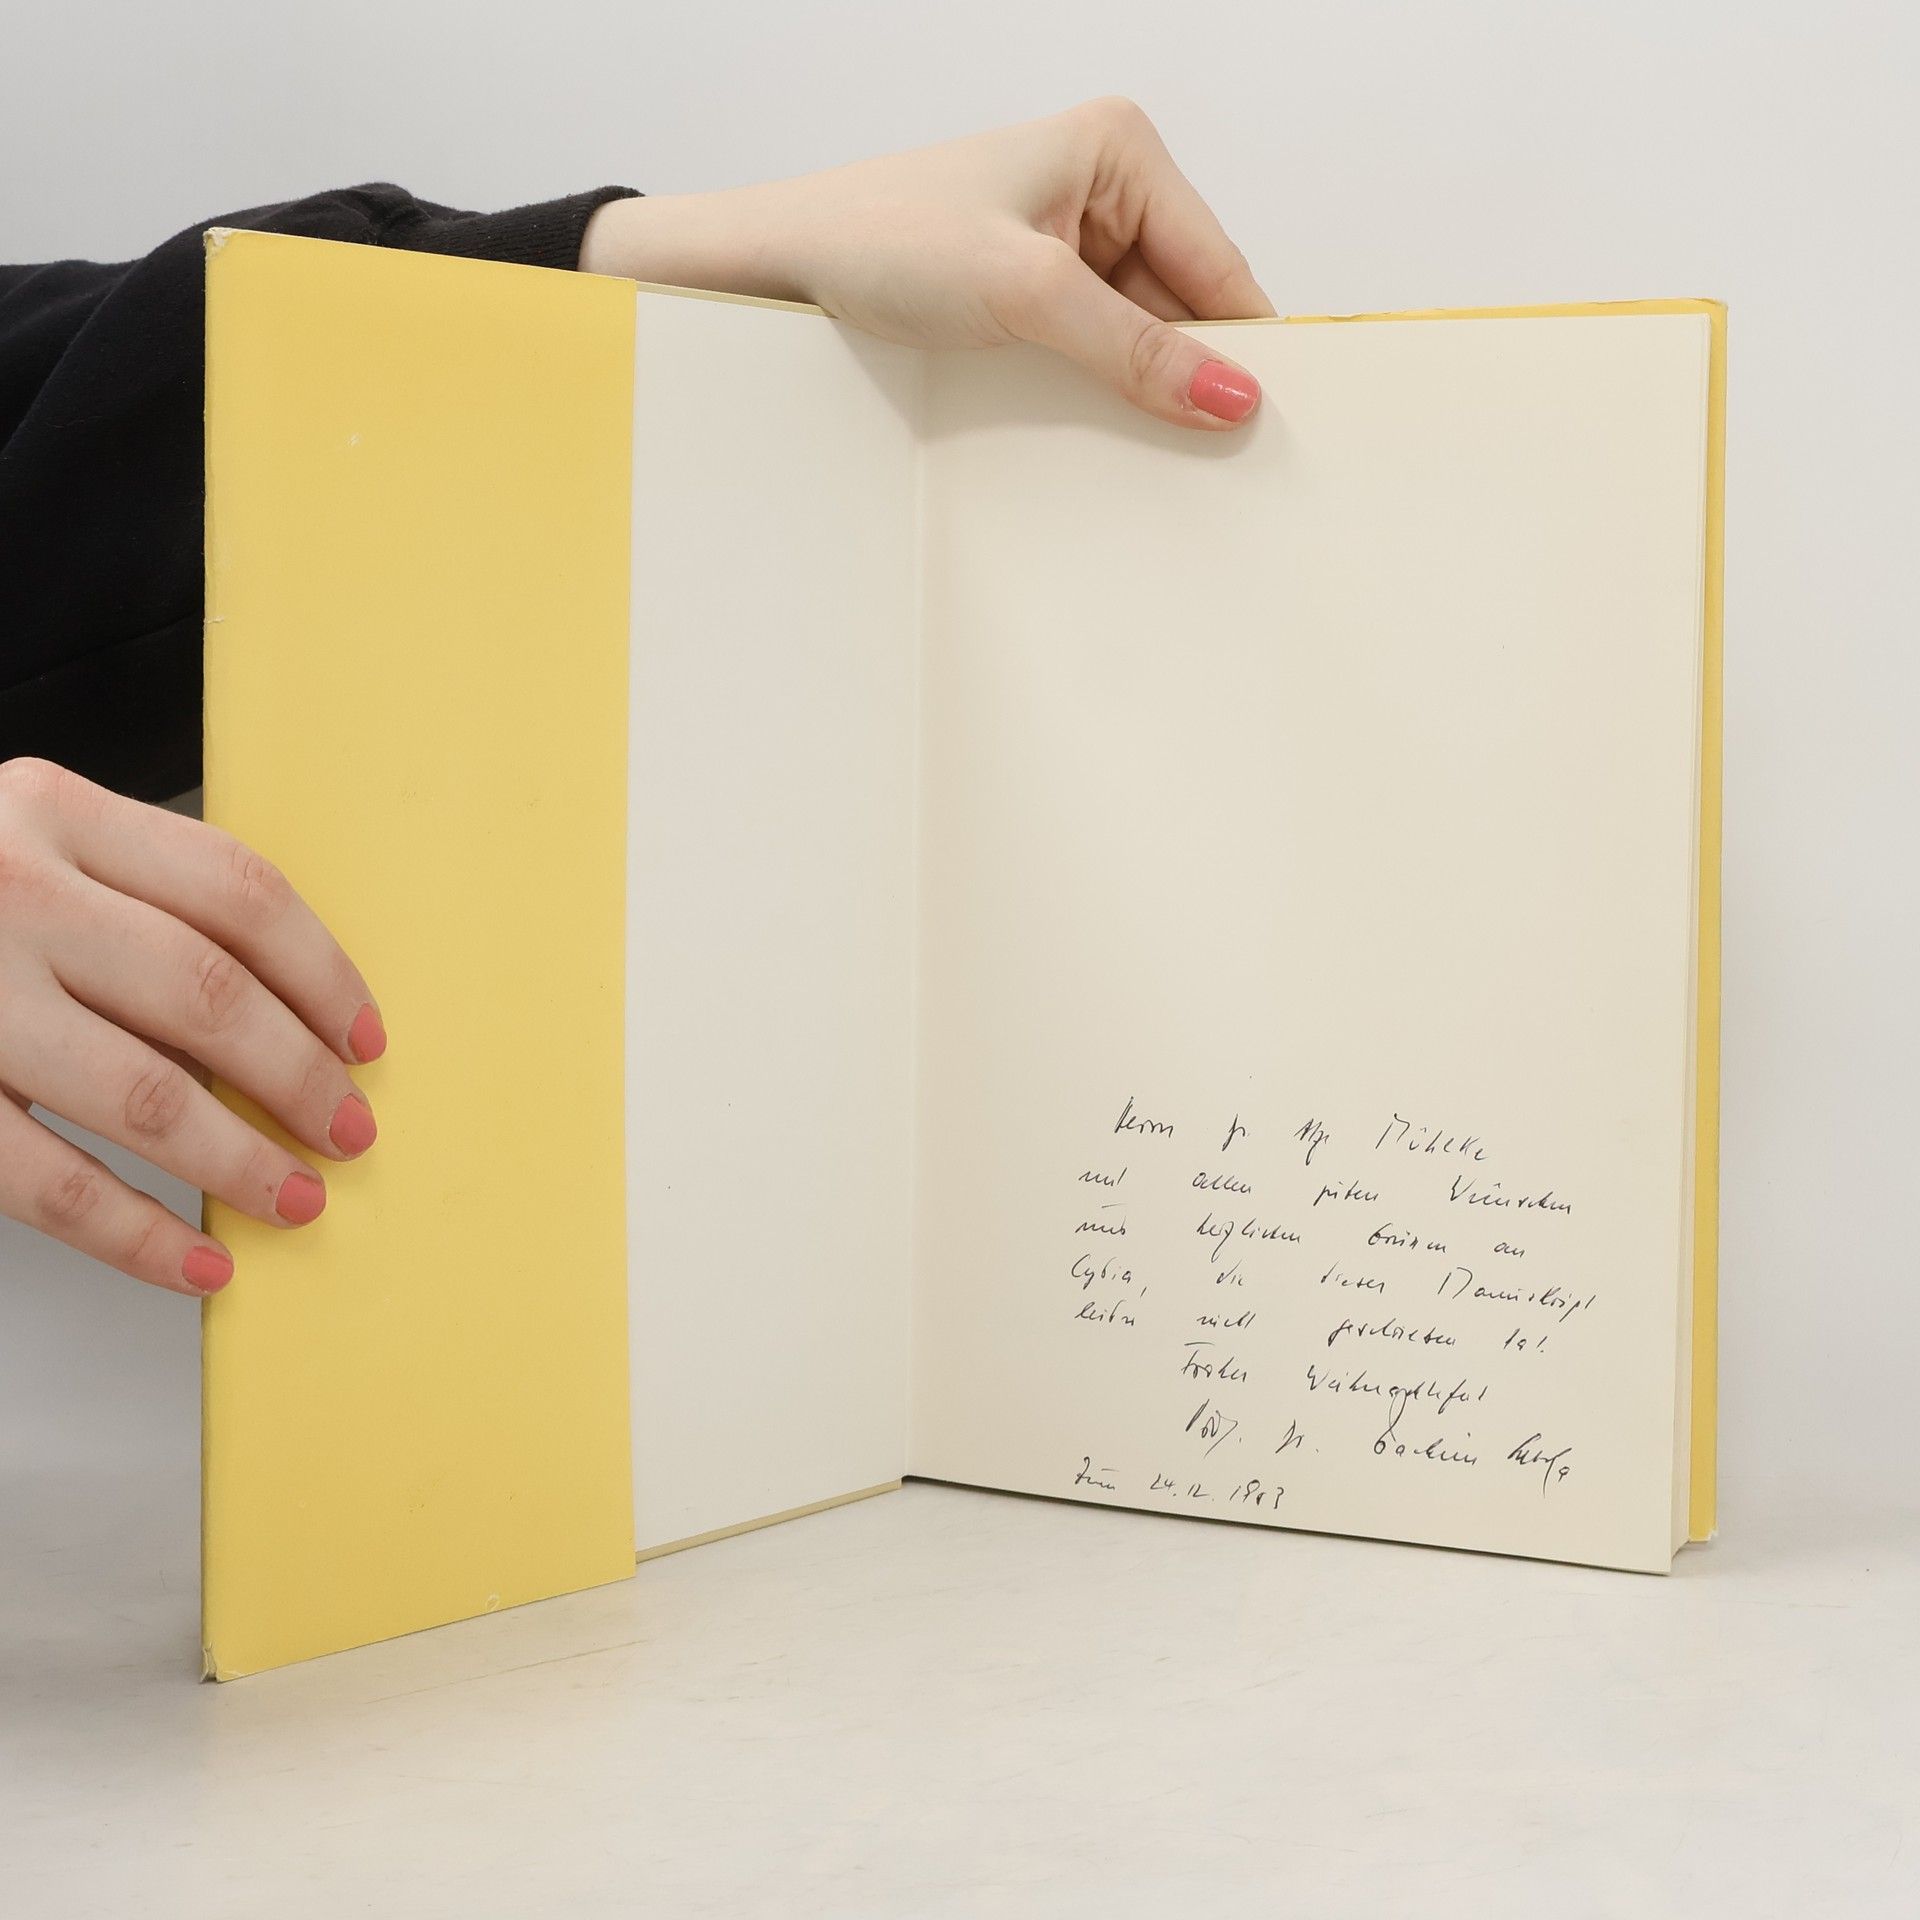 Herrn Dr. Mühlke
mit allen guten Wünschen
und herzlichen Grüßen an
die dieses Manuskript
leider nicht geschrieben hat.
Frohes Weihnachtsfest
Prof. Dr. Joachim
Zum 24.12. 1983